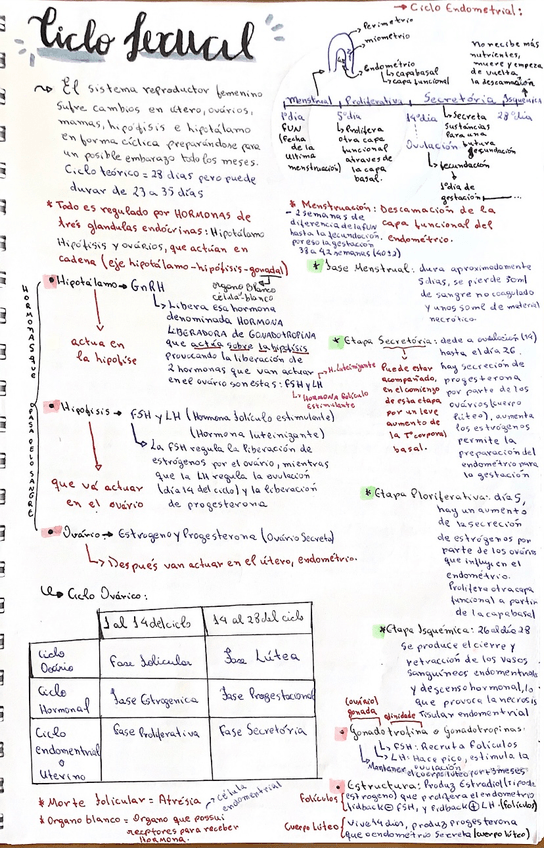 Ciclo Sexual
~> El sistema reproductor femenino
sufre cambios en útero, ovários,
mamas, hipófisis e hipotálamo
en forma cíclica preparándose para
un posible embarazo todo los meses.
Ciclo teórico = 28 días pero puede
durar de 23 a 35 días
* Todo es regulado por HORMONAS de
tres glandulas endócrinas: Hipotálamo
Hipófisis y ovários, que actúan en
cadena (eje hipotálamo-hipófisis-gonadal)
órgano blanco
célula blanco
HORMONAS QUE PASA DELO SANGRE
• Hipotálamo → GnRH
↳ Libera esa hormona
denominada HORMONA
LIBERADORA DE GONADOTROPINA
que actúa sobre la hipófisis
provocando la liberación de
2 hormonas que van actuar
en el ovário son éstas: FSH y LH
→ H. luteinizante
↳ HORMONA folículo
estimulante
actua en
la hipófise
• Hipófisis → FSH y LH (Hormona folículo estimulante)
(Hormona luteinizante)
↳ La FSH regula la liberación de
estrógenos por el ovário, mientras
que la LH regula la ovulación
(día 14 del ciclo) y la liberación
de progesterona
que vá actuar
en el ovário
• Ovário → Estrogeno y Progesterona (Ovário Secreta)
↳ Después van actuar en el útero, endométrio.
↳ Ciclo Ovárico:
1 al 14 del ciclo
14 al 28 del ciclo
Ciclo Ovário
Fase folicular
Fase Lútea
Ciclo Hormonal
Fase Estrogenica
Fase Progestacional
Ciclo endometrial o Uterino
Fase Proliferativa
Fase Secretória
* Morte folicular = Atrésia
→ célula endometrial
* Organo blanco = Organo que possui
receptores para receber
Hormona.
→ Ciclo Endometrial:
Perimetrio
miometrio
Endométrio
↳ capa basal
↳ capa funcional
No recibe más
nutrientes,
muere y empeza
de vuelta
la descamación
Menstrual Proliferativa Secretória Isquémica
1º día
FUN
(Fecha
de la
última
menstruación)
5º día
↳ Prolifera
otra capa
funcional
através de
la capa
basal.
14º día
Ovulación
↳ Secreta
Sustáncias
Para una
futura
fecundación
28º día
↳ fecundación
↳ 1º día de
gestación → ...
* Menstruación: Descamación de la
capa funcional del
endométrio.
- 2 semanas de
diferencia de la FUN
hasta la fecundación,
por eso la gestación
38 a 42 semanas (40±2)
* Fase Menstrual: dura aproximadamente
5 días, se pierde 50ml
de sangre no coagulado
y unos 50ml de material
necrótico.
* Etapa Secretória: dede a ovulación (14)
hasta el día 26.
hay secreción de
progesterona
por parte de los
ovários (cuerpo
lúteo), aumenta
los estrógenos
permite la
preparación del
endométrio para
la gestación
Puede estar
acompañado,
en el comiengo
de esta etapa
por un leve
aumento de
la Tº corporal
basal.
* Etapa Ploriferativa: día 5,
hay un aumento
de la secreción
de estrógenos por
parte de los ovários
que influy en el
endométrio.
Prolifera otra capa
funcional a partir
de la capa basal
* Etapa Isquémica: 26 al día 28
se produce el cierre y
retracción de los vasos
sanguíneos endometriales
y descenso hormonal, lo
que provoca la necrosis
Tisular endometrial
(ovários)
gonada
afinidade
* Gonadotrofina o Gonadotropinas:
↳ FSH: Recruta folículos
↳ LH: Hace pico, estimula la
ovulación
Mantener el cuerpo lúteo por 3 meses
* Estructura: Produz Estradiol (tipo de
Folículos estrogeno) que prolifera el endométrio
fidback ⊖ FSH, y fidback ⊕ LH (folículo)
Cuerpo Lúteo Vive 14 días, produz progesterona
que o endométrio Secreta (cuerpo lúteo)